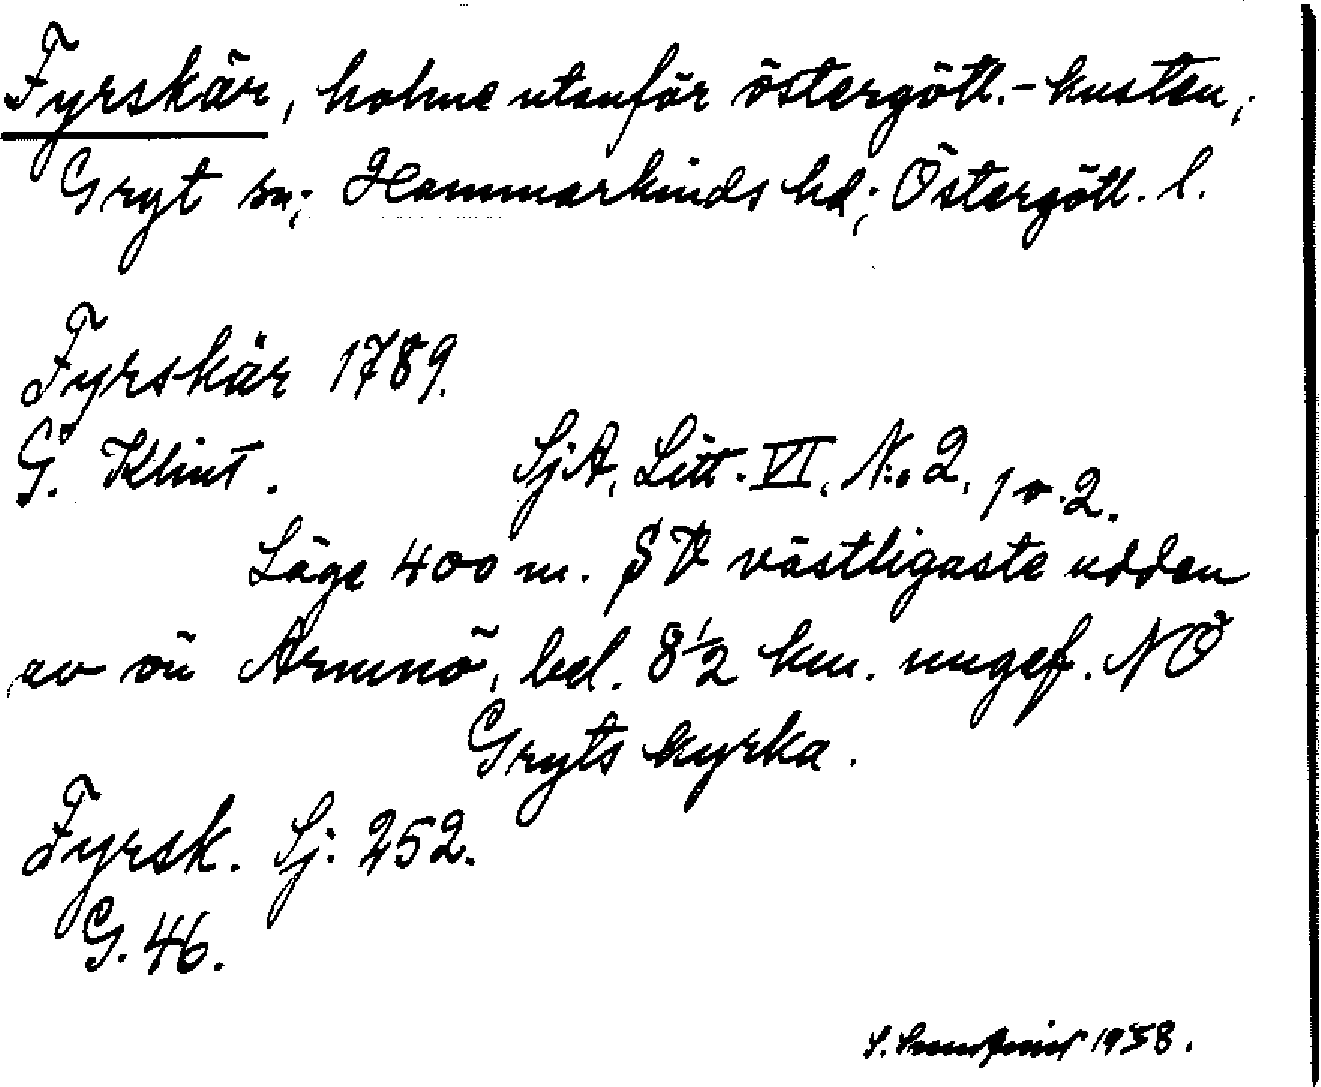 Fyrskär, holme utanför östergötl.-kusten,
Gryt sn; Hammarkinds hd; Östergötl. l.
Fyrskär 1789.
G. Klint. SjA, Litt. VI, N:o 2, 1 o. 2.
Läge 400 m. SV västligaste udden
av ön Ämmnö, bel. 8½ km. ungef. NO
Gryts kyrka.
Fyrsk. Sj. 252.
G. 46.
S. 1938.